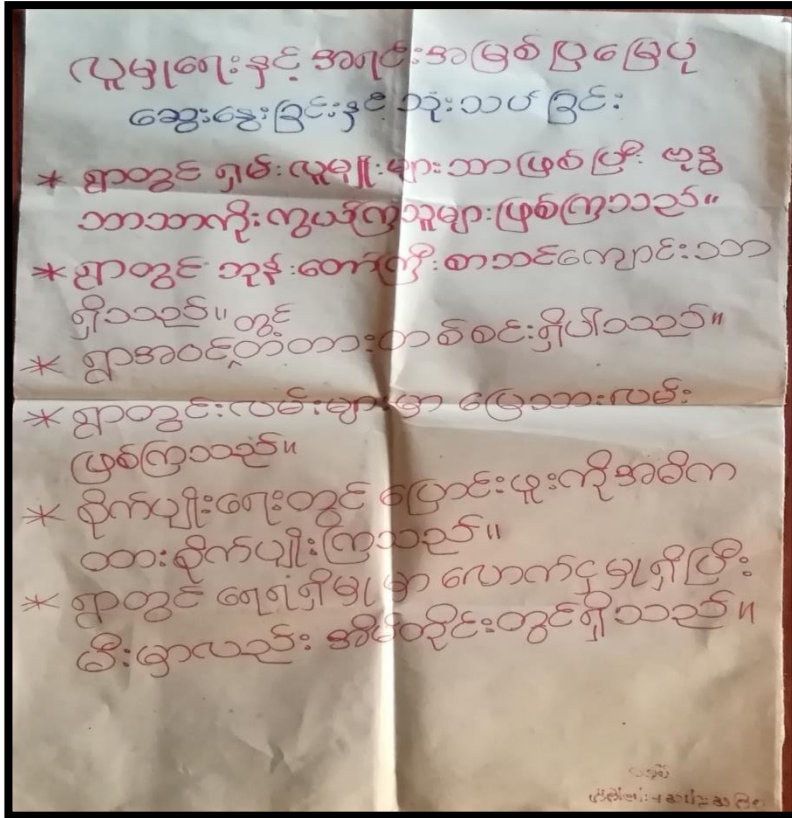 လူမှုရေးနှင့် အရင်းအမြစ်ပြမြေပုံ
ဆွေးနွေးခြင်းနှင့် သုံးသပ်ခြင်း
* ရွာတွင် ရှမ်းလူမျိုးများသာဖြစ်ပြီး ဗုဒ္ဓ
ဘာသာကိုးကွယ်ကြသူများဖြစ်ကြသည်။
* ရွာတွင် ဘုန်းတော်ကြီးစာသင်ကျောင်းသာ
ရှိသည်။
* ရွာအဝင်တွင် တံတားတစ်စင်းရှိပါသည်။
* ရွာတွင်းလမ်းများမှာ မြေသားလမ်း
ဖြစ်ကြသည်။
* စိုက်ပျိုးရေးတွင် ပြောင်းဖူးကိုအဓိက
ထားစိုက်ပျိုးကြသည်။
* ရွာတွင် ရေရရှိမှုမှာ လောက်ငှမှုရှိပြီး
မီးမှာလည်း အိမ်တိုင်းတွင်ရှိသည်။